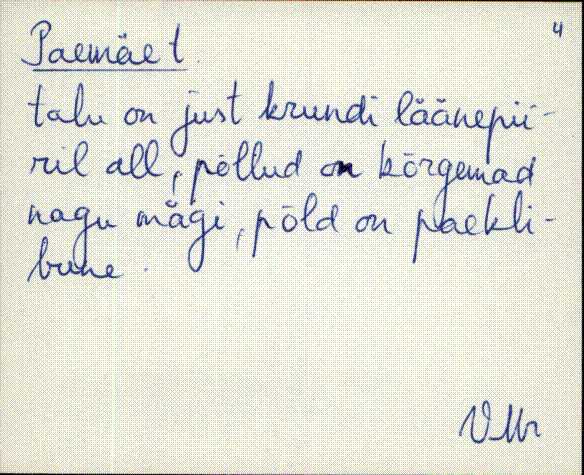 4
Paemäe t.
talu on just krundi läänepii-
ril all, põllud on kõrgemad
nagu mägi, põld on paekli-
bune.
VMr